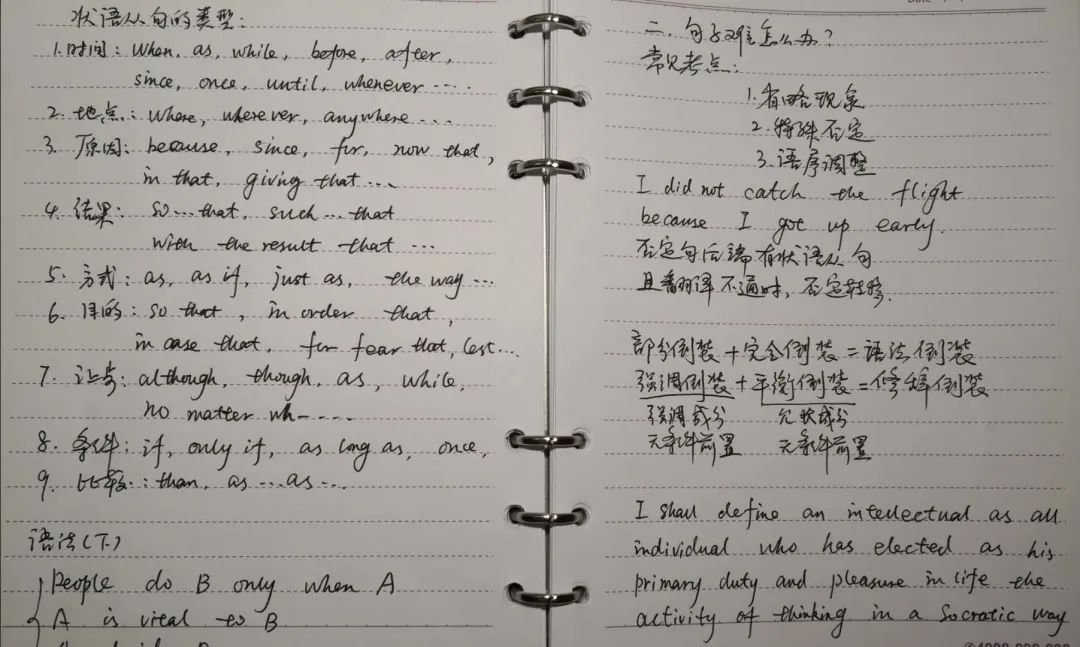 状语从句的类型:
1.时间: when, as, while, before, after,
since, once, until, whenever ····
2. 地点: where, wherever, anywhere ···
3. 原因: because, since, for, now that,
in that, giving that ···
4. 结果: so ··· that, such ··· that
with the result that ···
5. 方式: as, as if, just as, the way ···
6. 目的: so that, in order that,
in case that, for fear that, lest ···
7. 让步: although, though, as, while,
no matter wh- ····
8. 条件: if, only if, as long as, once,
9. 比较: than, as ··· as ···
语法(下)
people do B only when A
A is vital to B
二、句子难怎么办?
常见考点:
1.省略现象
2.特殊否定
3.语序调整
I did not catch the flight
because I got up early.
否定句后端有状语从句
且翻译不通时, 否定转移.
部分倒装 + 完全倒装 = 语法倒装
强调倒装 + 平衡倒装 = 修辞倒装
强调成分 冗状成分
无条件前置 无条件前置
I shall define an intellectual as all
individual who has elected as his
primary duty and pleasure in life the
activity of thinking in a Socratic way